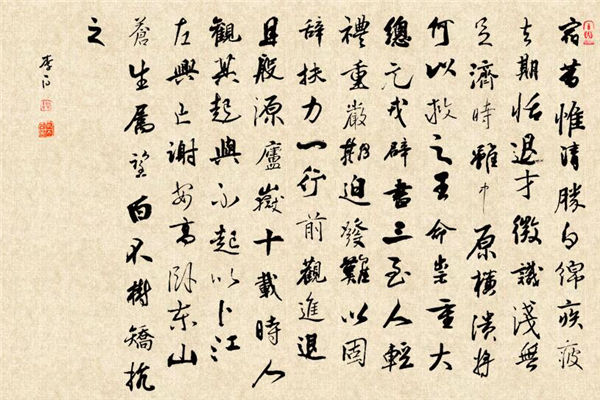 宿昔惟清勝白綿疾疲
去期恬退才微識淺無
足濟時雖中原橫潰將
何以救之王命崇重大
總元戎辟書三至人輕
禮重嚴期迫發難以固
辭扶力一行前觀進退
且殷源廬嶽十載時人
觀其起與不起以卜江
左興亡謝安高臥東山
蒼生屬望白不樹矯抗
之
李白